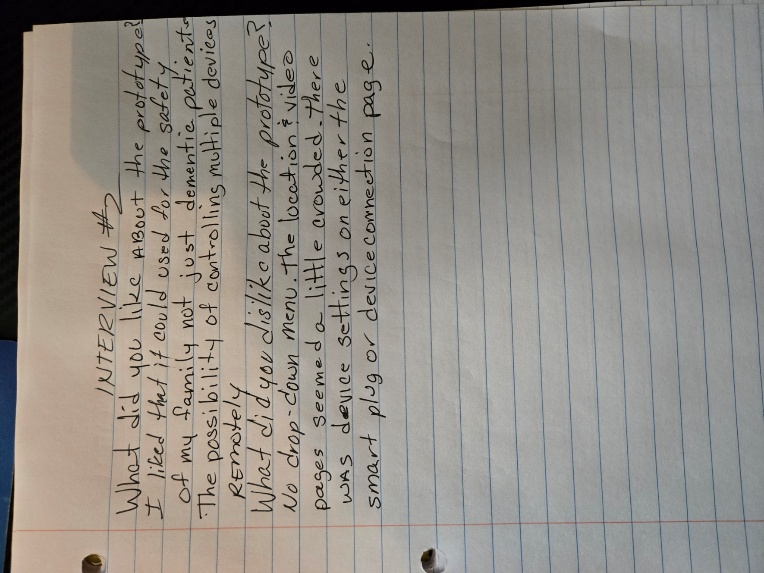 INTERVIEW #2
What did you like ABOUT the prototype?
I liked that it could used for the safety
of my family not just dementia patients
The possibility of controlling multiple devices
REMOTELY
What did you dislike about the prototype?
No drop-down menu. The location & video
pages seemed a little crowded. There
WAS device settings on either the
smart plug or device connection page.